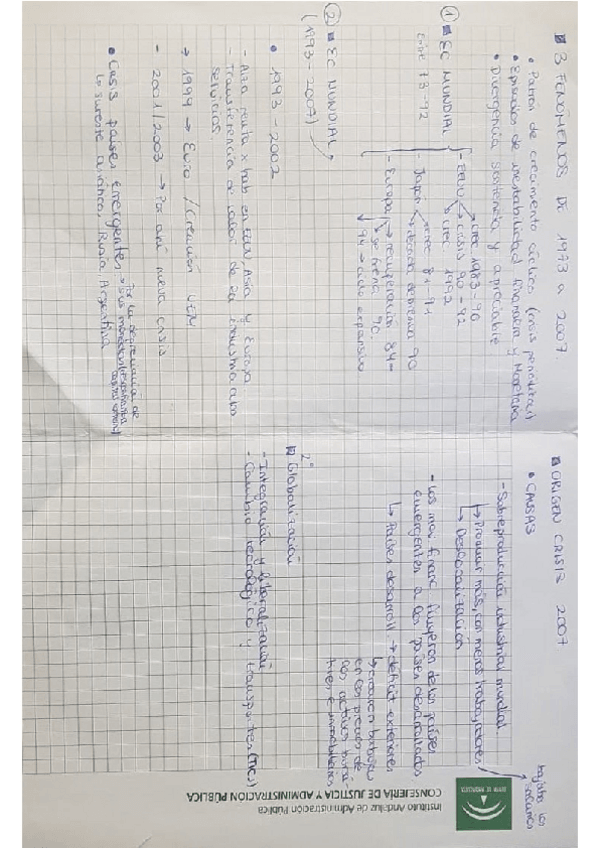 3 FENÓMENOS DE 1973 A 2007.
• Patrón de crecimiento cíclico (crisis periódicas)
• Episodios de inestabilidad financiera y Monetaria
• Divergencia sostenida y apreciable
① EC MUNDIAL
entre 73-92
- EEUU
crec 1983-90
crisis 90-92
crec 1992
- Japón
crec 87-91
década depresiva 90
- Europa
recuperación 84-
se frena 90.
94 → ciclo expansivo
② EC MUNDIAL
(1993-2007)
• 1993-2002
- Alza renta x hab en EEUU, Asia y Europa
- Transferencia de valor de la industria a los
servicios.
→ 1999 → Euro / Creación UEM
- 2001/2003 → Por aquí nueva crisis
• Crisis países emergentes →
lo sureste asiático, Rusia, Argentina
ORIGEN CRISIS 2007
• CAUSAS
- Sobreproducción industrial mundial
↳ Producir más, con menos trabajadores
↳ Deslocalización
bajaba los
salarios
- Los mov. financ fluyeron de los países
emergentes a los países desarrollados
↳ Países desarroll. → déficit exteriores
↳ crearon burbujas
en los precios de
los activos bursá-
tiles e inmobiliarios
2º
Globalización
- Integración y liberalización
- Cambio tecnológico y transportes (TICs)
JUNTA DE ANDALUCIA
Instituto Andaluz de Administración Pública
CONSEJERÍA DE JUSTICIA Y ADMINISTRACIÓN PÚBLICA